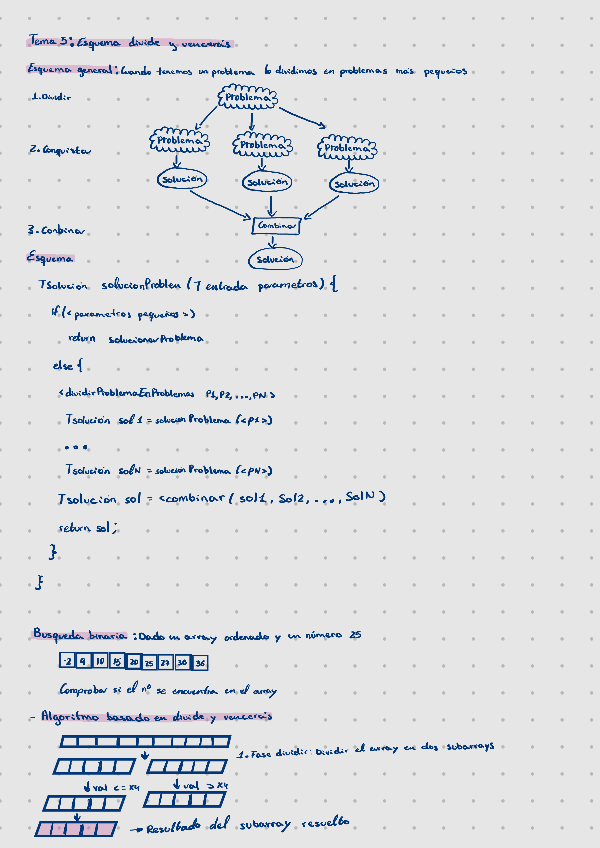 Tema 5: Esquema divide y vencerás
Esquema general: Cuando tenemos un problema lo dividimos en problemas más pequeños
1. Dividir
Problema
2. Conquistar
Problema Problema Problema
Solución Solución Solución
3. Conbinar
Combinar
Esquema
Solución
TSolución solucionProblem (T entrada parametros) {
If (<parametros pequeños>)
return solucionarProblema
else {
<dividirProblemaEnProblemas P1, P2, ..., PN>
Tsolución sol1 = solucionProblema (<P1>)
...
Tsolución solN = solucionProblema (<PN>)
Tsolución sol = <combinar (sol1, Sol2, ..., SolN)
return sol;
}
}
Busqueda binaria: Dado un array ordenado y un número 25
-2 9 10 15 20 25 27 30 36
Comprobar si el nº se encuentra en el array
- Algoritmo basado en divide y vencerás
1. Fase dividir: Dividir el array en dos subarrays
val <= x4 val > x4
→ Resultado del subarray resuelto